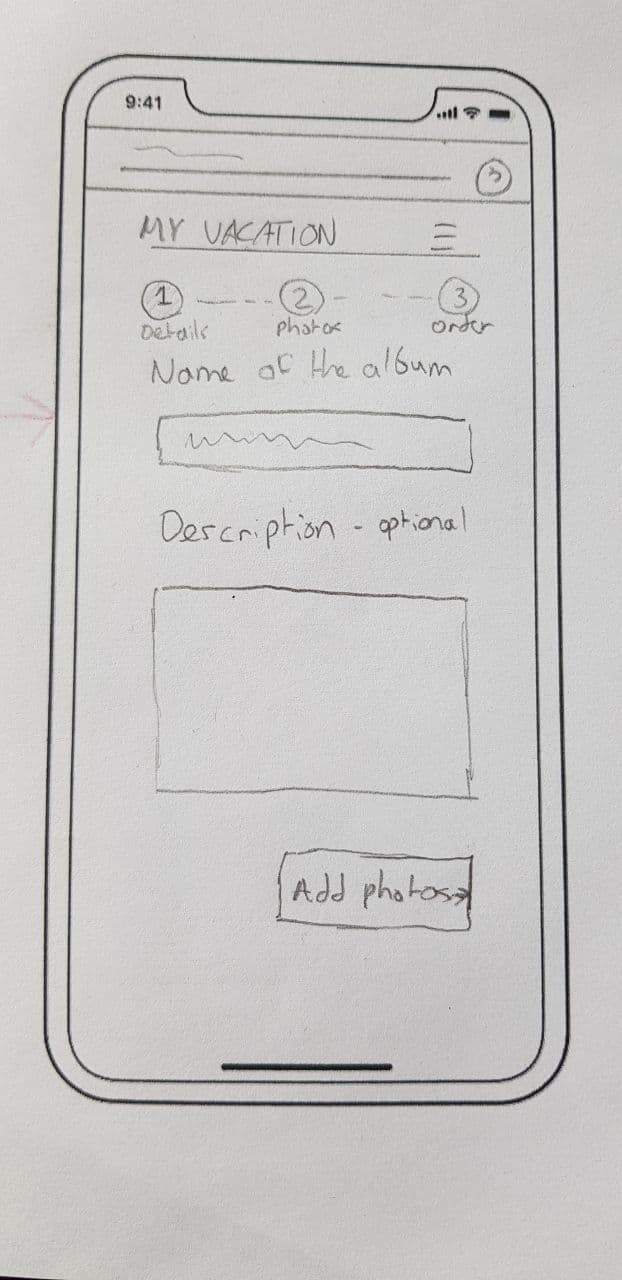 9:41
MY VACATION
1 2 3
Details photos order
Name of the album
Description - optional
Add photos→